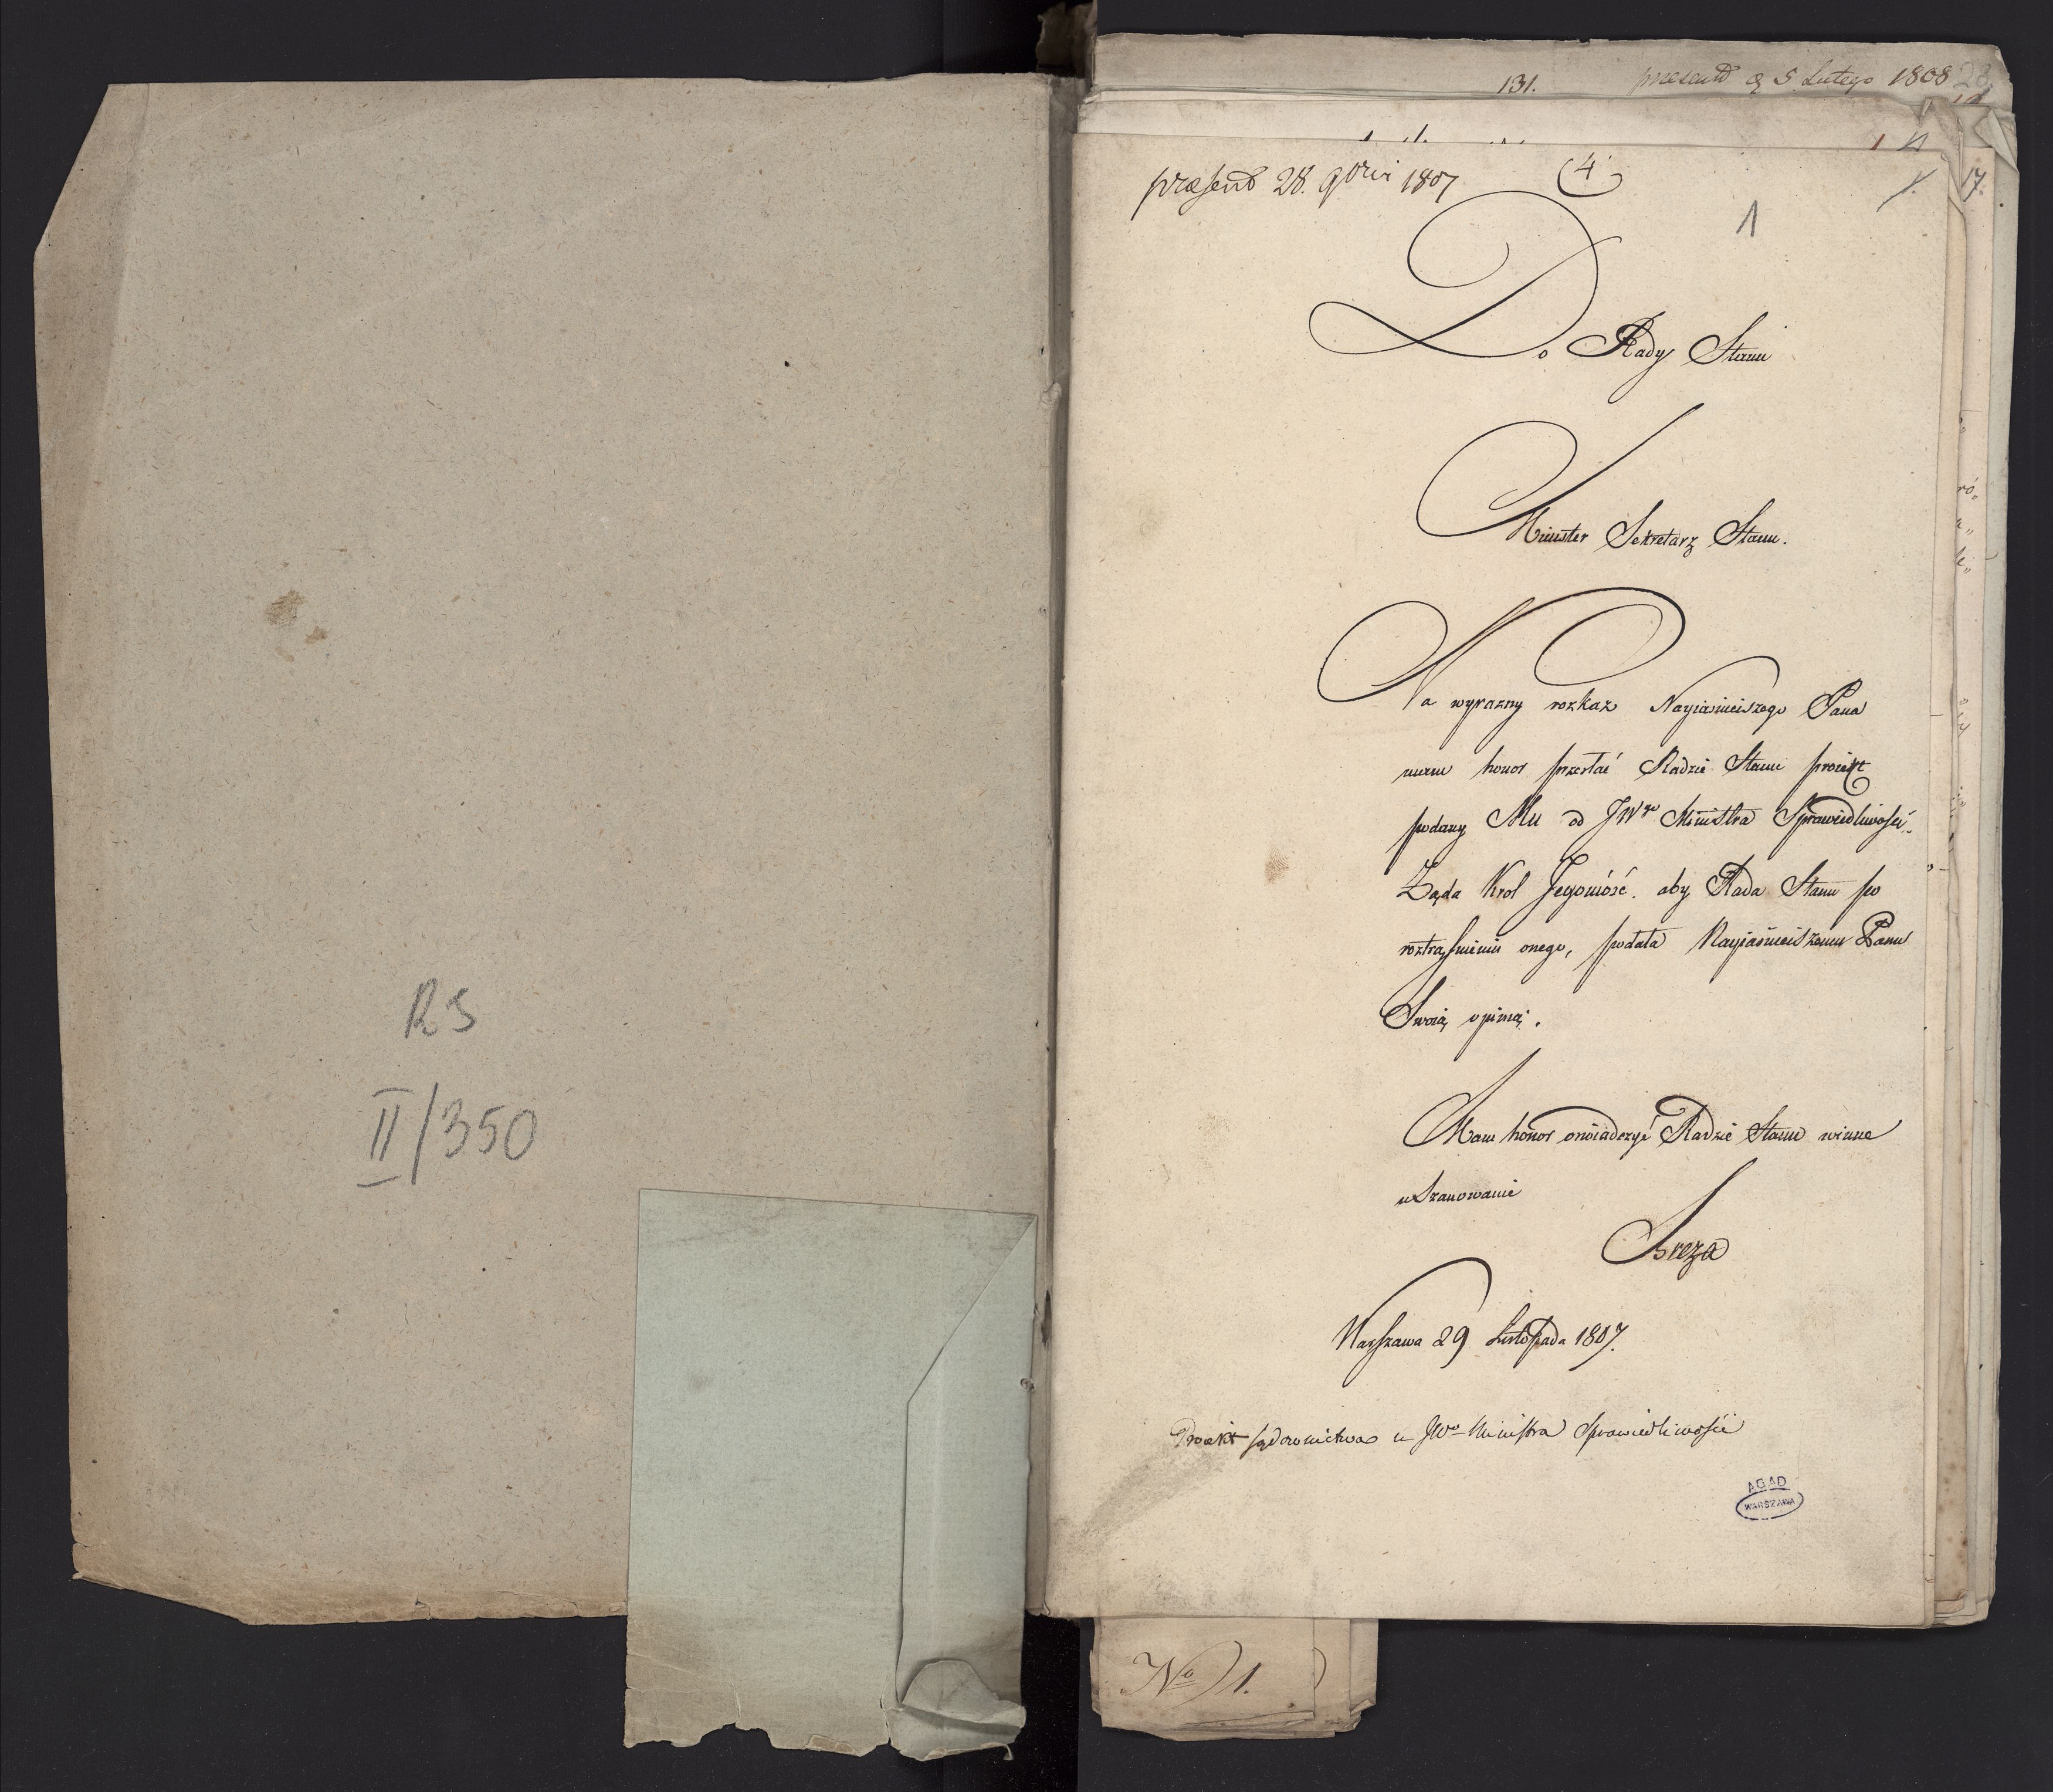 RS
II/350
131. 5 Lutego 1808
17.
præsent 28. 9bris 1807 (4)
1
Do Rady Stanu
Minister Sekretarz Stanu.
Na wyrazny rozkaz Nayiasnieiszego Pana
mam honor przesłać Radzie Stanu proiekt
podany Mu od JWgo Ministra Sprawiedliwości.
Żąda Krol Jegomość. aby Rada Stanu po
roztrząśnieniu onego, podała Nayiaśnieiszemu Panu
Swoią opinią.
Mam honor oświadczyć Radzie Stanu winne
uszanowanie
Breza
Warszawa 29 Listopada 1807.
Proiekt sądownictwa u JWo Ministra Sprawiedliwości
AGAD
WARSZAWA
No 1.